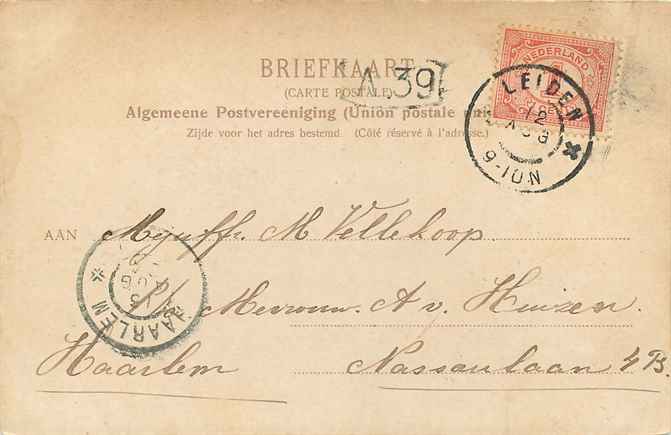 NEDERLAND
BRIEFKAART
(CARTE POSTALE)
A 39
Algemeene Postvereeniging (Union postale
Zijde voor het adres bestemd (Côté réservé à l'adresse.)
LEIDEN
12
AUG
9-10N
AAN Mejuffr. M Vellekoop
p/a Mevrouw. A v. Huizen
Haarlem Nassaulaan 4 B.
HAARLEM
AUG